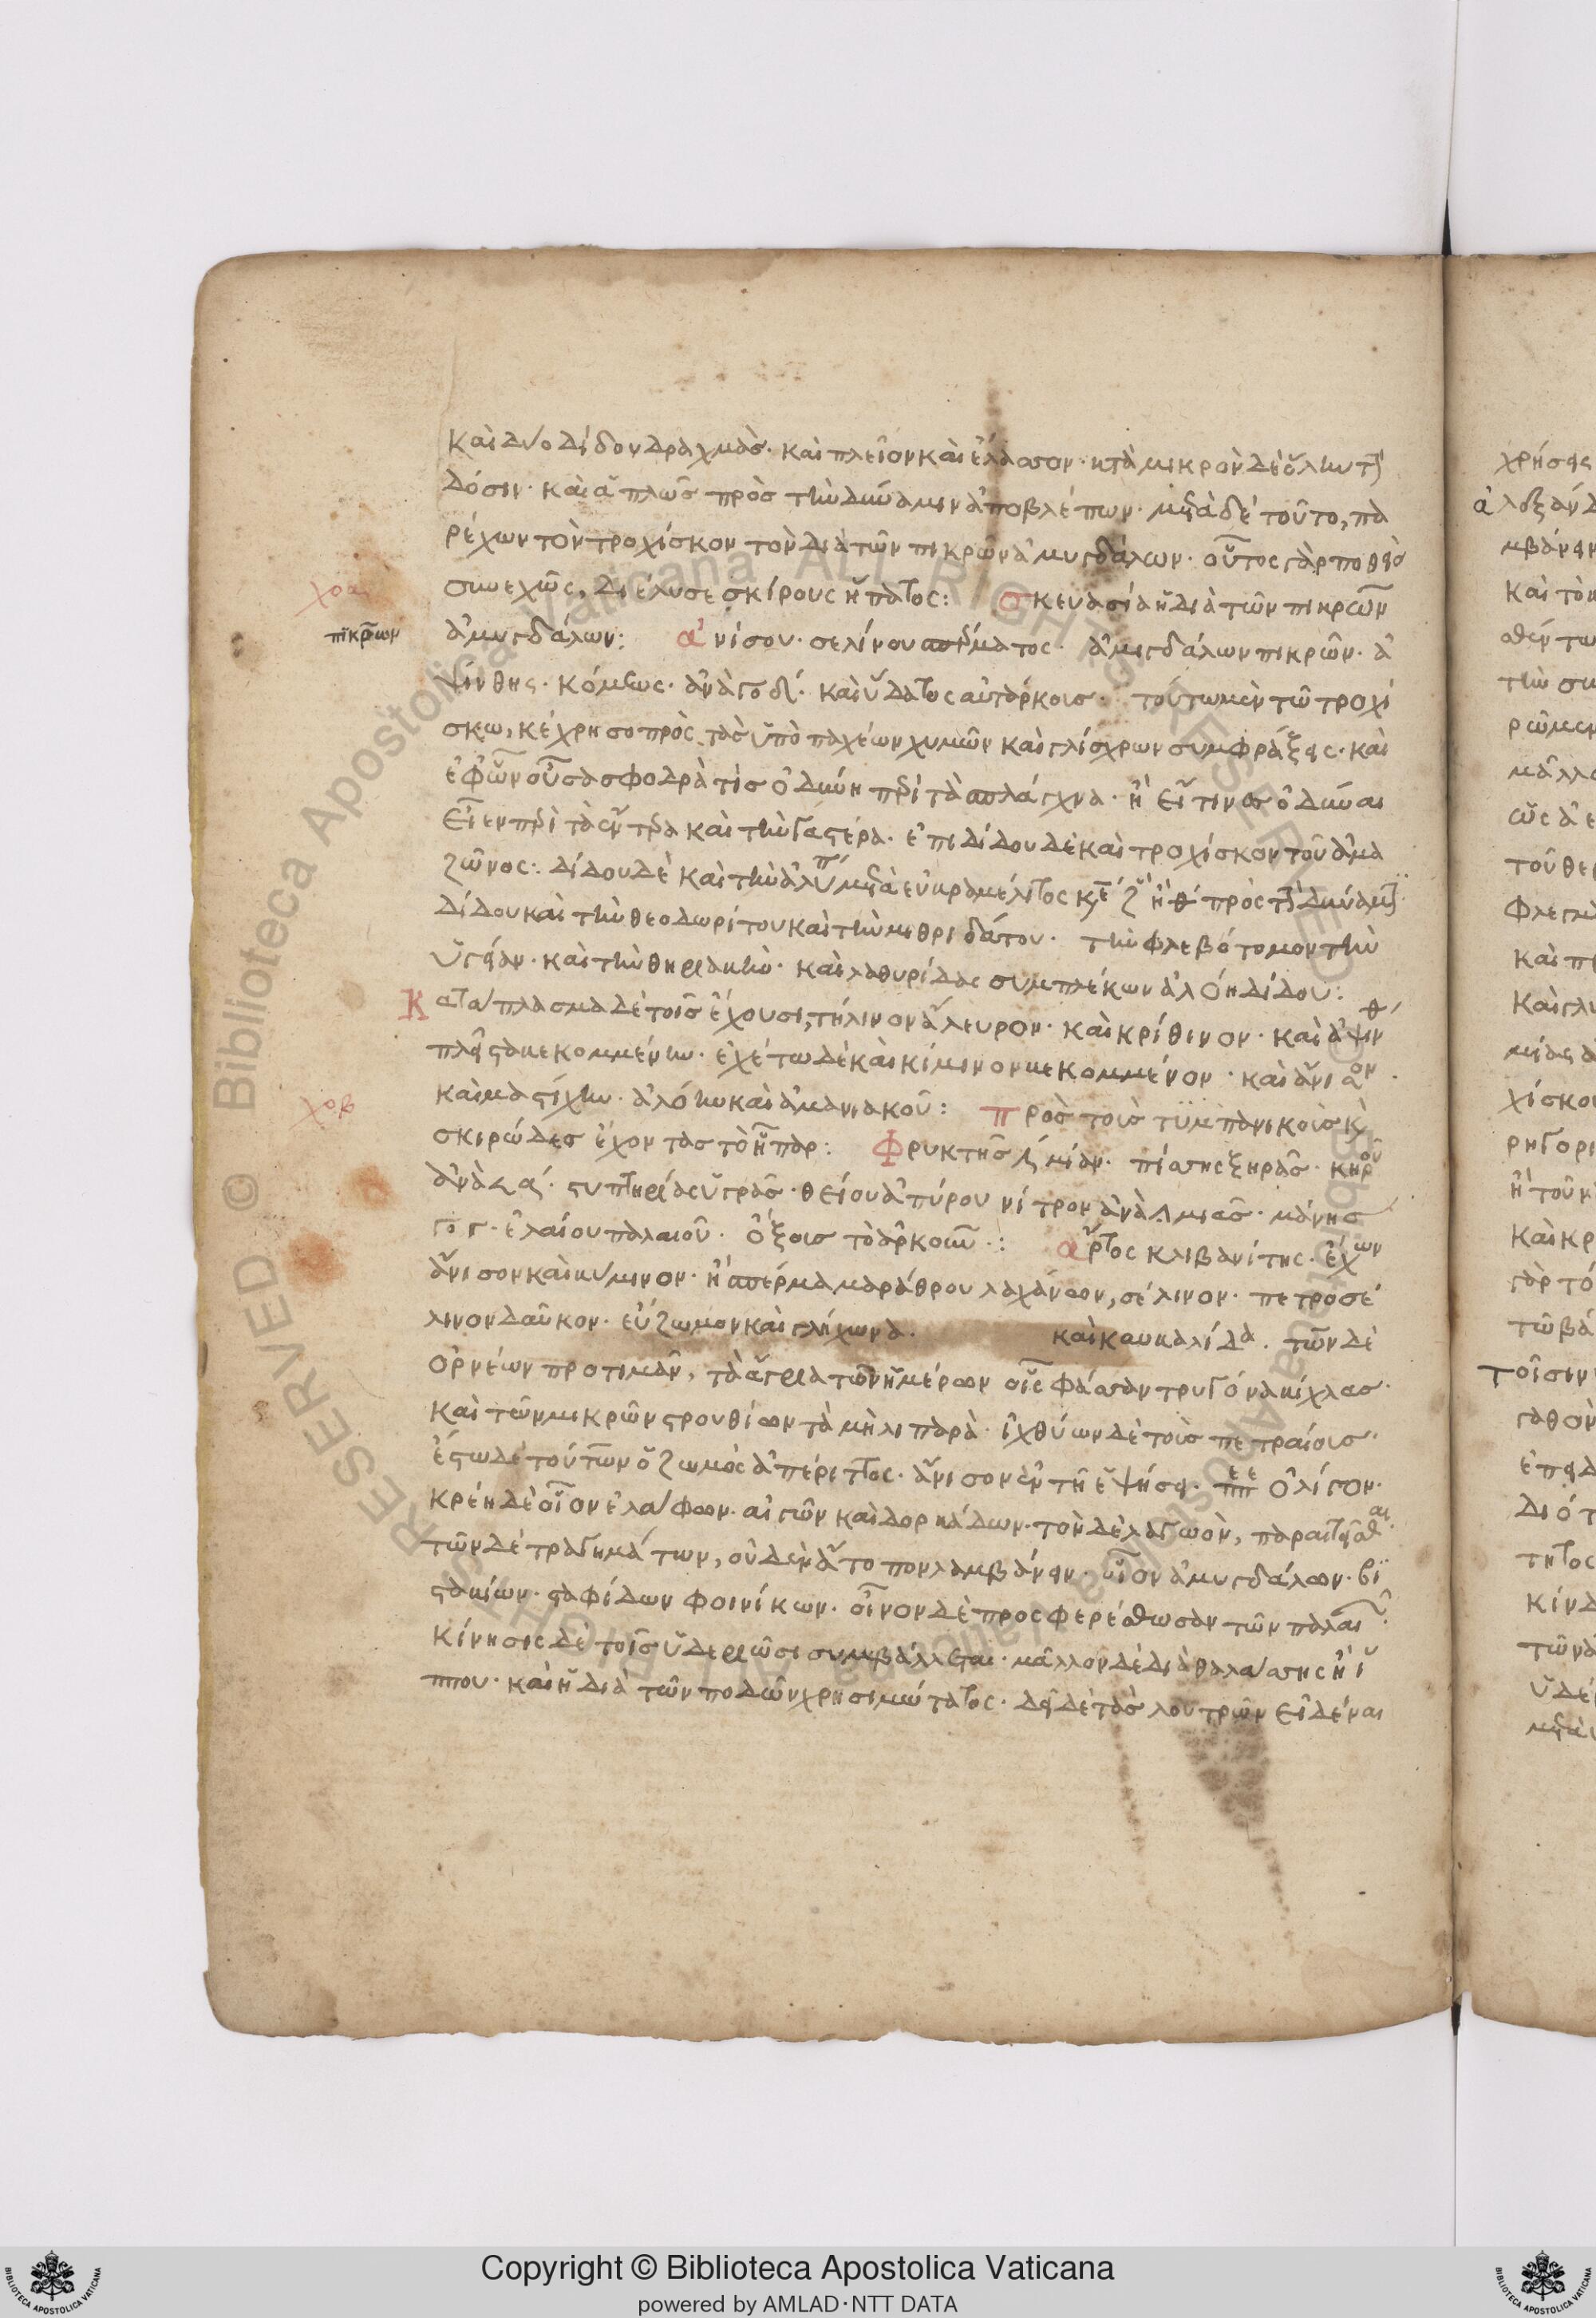 καὶ δύο δίδου δραχμάς· καὶ πλεῖον καὶ ἔλασσον· κτὰ μικρὸν δὲ ὅλην τ
δόσιν· καὶ ἁπλῶς πρὸς τὴν δύναμιν ἀποβλέπων· μετὰ δὲ τοῦτο, πα
ρέχων τὸν τροχίσκον τὸν διὰ τῶν πικρῶν ἀμυγδάλων· οὗτος γὰρ ποθεὶς
συνεχῶς, διέλυσε σκίρους ἥπατος: σκευασία ἡ διὰ τῶν πικρῶν
χοα
πικρῶων
ἀμυγδάλων: ἀνίσου· σελίνου σπέρματος· ἀμιγδάλων πικρῶν· ἀ
ψίνθης· κόμεως· ἀνὰ γο · καὶ ὕδατος αὐτάρκοις· τούτω μὲν τῶ τροχί
σκω, κέχρησο πρὸς τὰς ὑπὸ παχέων χυμῶν καὶ γλίσχρων συμφράξεις· καὶ
ἐφ' ὧν οὖσα σφοδρά τις ὀδύνη περὶ τὰ σπλάγχνα· ἢ εἴ τινες ὀδύναι
εἶεν περὶ τὰ ἔντερα καὶ τὴν γαστέρα· ἐπιδίδου δὲ καὶ τροχίσκον τοῦ ἀμα
ζῶνος: δίδου δὲ καὶ τὴν ἀλυπ μετὰ εὐκραμέλιτος κε ζ ἢ θ πρὸς τ δύναμ
δίδου καὶ τὴν θεοδωρίτου καὶ τὴν μιθριδάτου· τὴν φλεβότομον τὴν
ὑγείαν· καὶ τὴν θηριακὴν· καὶ λαθυρίδας συμπλέκων ἀλόη δίδου:
κατάπλασμα δὲ τοῖς ἔχουσι, τήλινον ἄλευρον· καὶ κρίθινον· καὶ ἀψίνθ
πλεῖστα κεκομμένην· ἐχέτω δὲ καὶ κίμινον κεκομμένον· καὶ ἄνισον·
χοβ
καὶ μαστίχην· ἀλόην καὶ ἀμανιακοῦ: πρὸς τοῖς τυμπανικοῖς κ
σκιρώδες ἔχοντας τὸ ἧπαρ: φρυκτῆς λ μίαν· πίσσης ξηρᾶς· κηροῦ
ἀνὰ α· στυπτηρίας ὑγρᾶς· θείου ἀπύρου νίτρον ἀνὰ λ μιᾶς· μάνης
γο γ· ἐλαίου παλαιοῦ· ὄξοις τὸ ἀρκοῦν: ἄρτος κλιβανίτης· ἔχων
ἄνισον καὶ κύμινον· ἢ σπέρμα μαράθρου λαχάνων, σέλινον· πετροσέ
λινον δαῦκον· εὔζωμον καὶ γλήχωνα. καὶ καυκαλίδα. τῶν δὲ
ὀρνέων προτιμᾶν, τὰ ἄγρια τῶν ἡμέρων οἷς φάσσαν τρυγόνα κίχλας·
καὶ τῶν μικρῶν στρουθίων τὰ μὴ λιπαρὰ· ἰχθύων δὲ τοῖς πετραίοις·
ἔστω δὲ τούτων ὁ ζωμὸς ἀπέριττος· ἄνισον ἐν τῆ ἑψήσει· ὀλίγον·
κρέη δὲ οἷον ἐλάφων· αἰγῶν καὶ δορκάδων· τὸν δὲ λαγωὸν, παραιτεῖσθαι·
τῶν δὲ τραγημάτων, οὐδὲν ἄτοπον λαμβάνειν· οἷον ἀμυγδάλων· βι
στακίων· σταφίδων φοινίκων· οἶνον δὲ προσφερέσθωσαν τῶν παλαι
κίνησις δὲ τοῖς ὑδεριῶσι συμβάλλεται· μᾶλλον δὲ διὰ θαλάσσης ἢ ἵ
ππου· καὶ ἡ διὰ τῶν ποδῶν χρησιμώτατος· δεῖ δὲ τὰς λουτρῶν εἰδέναι
χρήσεις
ἀλεξάνδ
μβάνειν
καὶ τὸν
ρῶμεν
μᾶλλο
τοῦ θερ
φλεγμ
καὶ π
καὶ γλι
χίσκο
ρηγορι
ἢ τοῦ
καὶ κρ
γὰρ τό
τῶ βά
τοῖσιν
γαθὸν
διότ
τητος
κίνδ
Copyright © Biblioteca Apostolica Vaticana
powered by AMLAD·NTT DATA